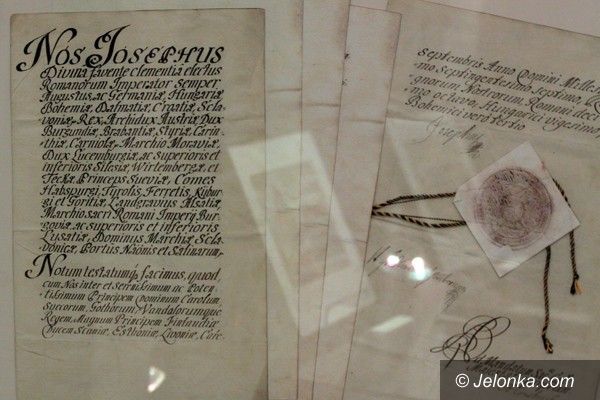 Nos Josephus
Divina favente clementia electus
Romanorum Imperator Semper
Augustus, ac Germaniæ, Hungariæ
Bohemiæ, Dalmatiæ, Croatiæ, Scla-
voniæ, Rex, Archidux Austriæ, Dux
Burgundiæ, Brabantiæ, Styriæ, Carin-
thiæ, Carniolæ, Marchio Moraviæ,
Dux Lucemburgiæ, ac Superioris et
inferioris Silesiæ, Wirtembergæ, et
Teckæ, Princeps Sueviæ, Comes
Habspurgi, Tyrolis, Ferretis, Kyburgi
gi et Goritiæ, Landgravius Alsatiæ,
Marchio sacri Romani Imperij Bur-
goviæ, ac superioris et inferioris
Lusatiæ, Dominus Marchiæ Scla-
vonicæ, Portus Naonis et Salinarum.
Notum testatumq facimus, quod,
cum Nos inter et Serenissimum ac Poten-
tissimum Principem Dominum Carolum,
Svecorum, Gothorum, Vandalorumque
Regem, Magnum Principem Finlandiæ
Ducem Scaniæ, Esthoniæ, Livoniæ, Care-
Septembris Anno Domini Mille-
mo septingentesimo septimo,
gnorum Nostrorum Romani deci-
mo octavo, Hungarici vigesimo,
Bohemici vero tertio
Josephus
© Jelonka.com